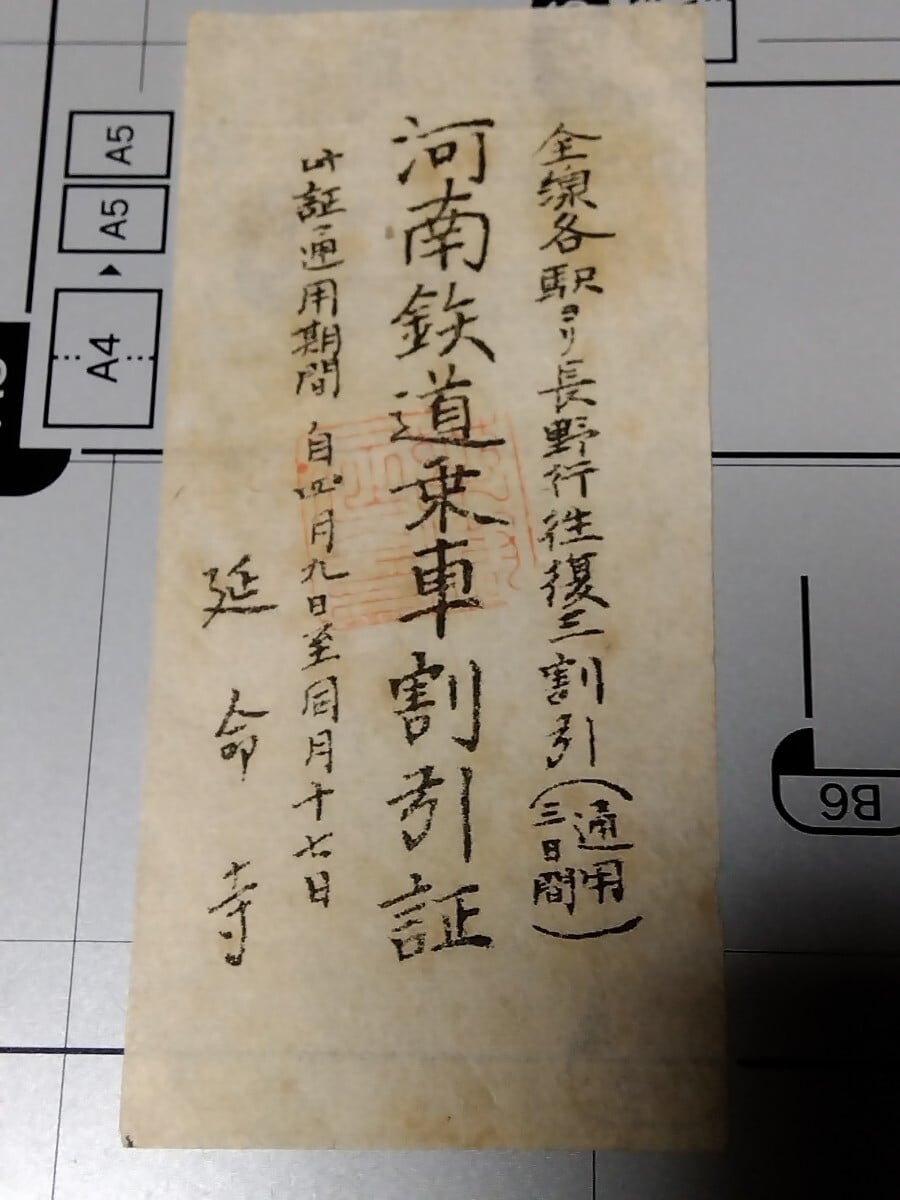 全線各駅ヨリ長野行往復三割引(通用三日間)
河南鉄道乗車割引証
此証通用期間 自四月九日至同月十七日
延命寺
A5
A5
A4
B6